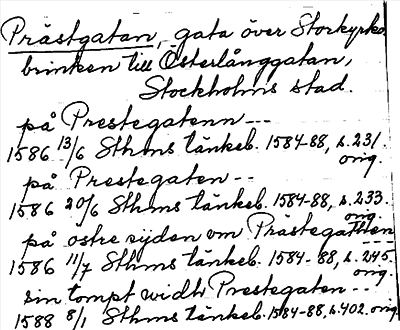 Prästgatan, gata över Storkyrko
brinken till Österlånggatan,
Stockholms stad.
på Prestegatenn ---
1586 13/6 Sthms tänkeb. 1584-88, s. 231.
orig.
på Prestegaten --
1586 20/6 Sthms tänkeb. 1584-88, s. 233.
orig.
på östre sijden om Prästegatten
1586 11/7 Sthms tänkeb. 1584-88, s. 245.
orig.
sin tompt widh Prestegaten ---
1588 8/1 Sthms tänkeb. 1584-88, s. 402. orig